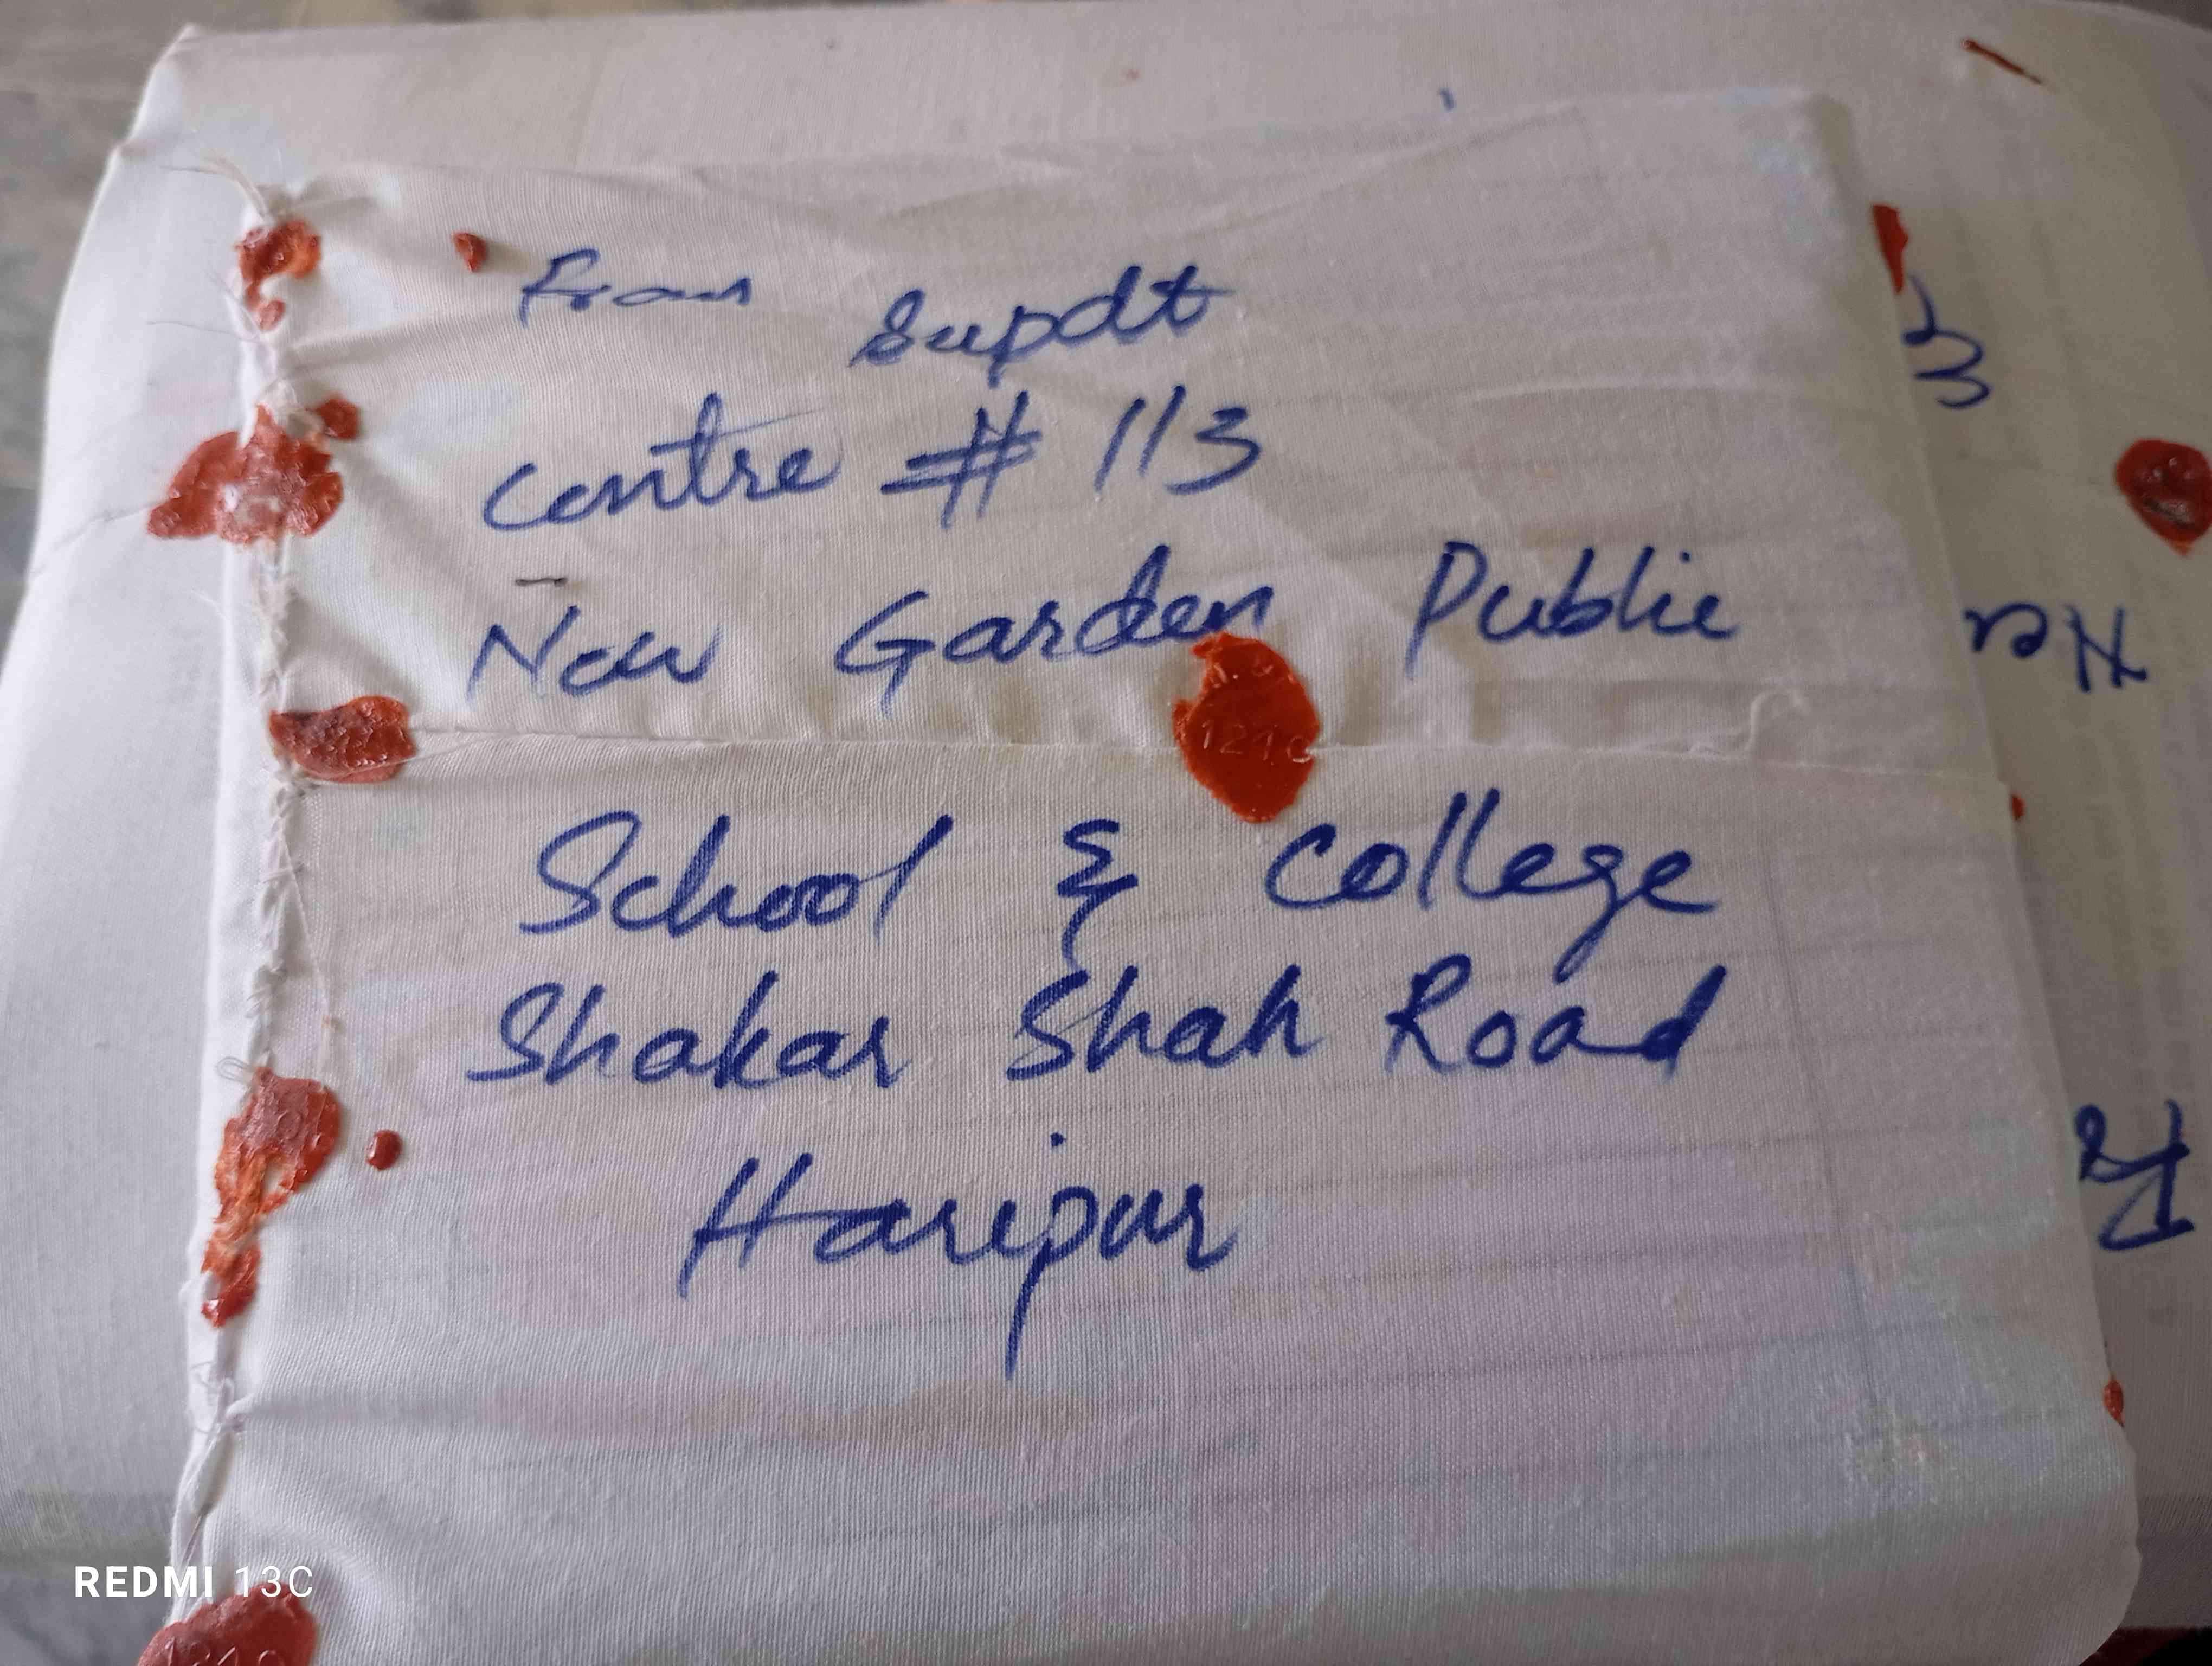 From Supdt
Centre # 113
New Garden Public
School & College
Shakar Shah Road
Haripur
1210
REDMI 13C